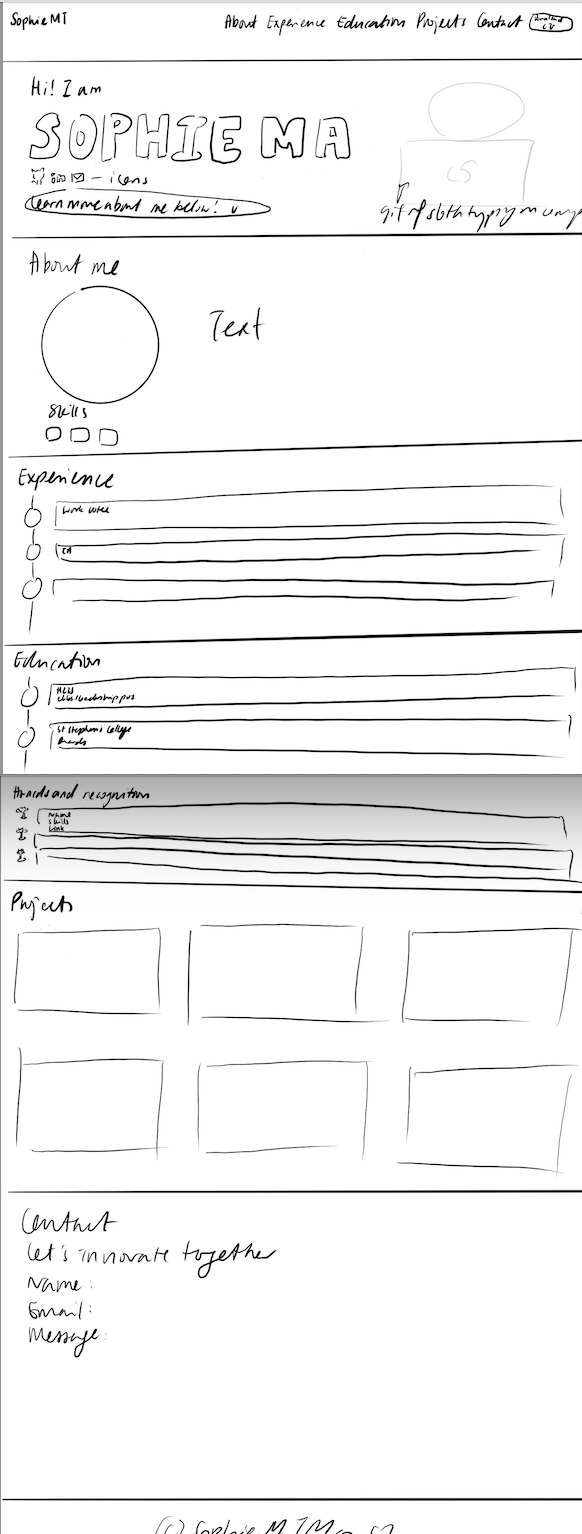 SophieMT
About Experience Education Projects Contact Download CV
Hi! I am
SOPHIE MA
— icons
Learn more about me below! v
gif of sbth typing on
About me
Text
Skills
Experience
Work
Education
St Stephen's College
Awards
Awards and recognition
Name
Skills
Link
Projects
Contact
Let's innovate together
Name:
Email:
Message:
(c) Sophie M T Ma